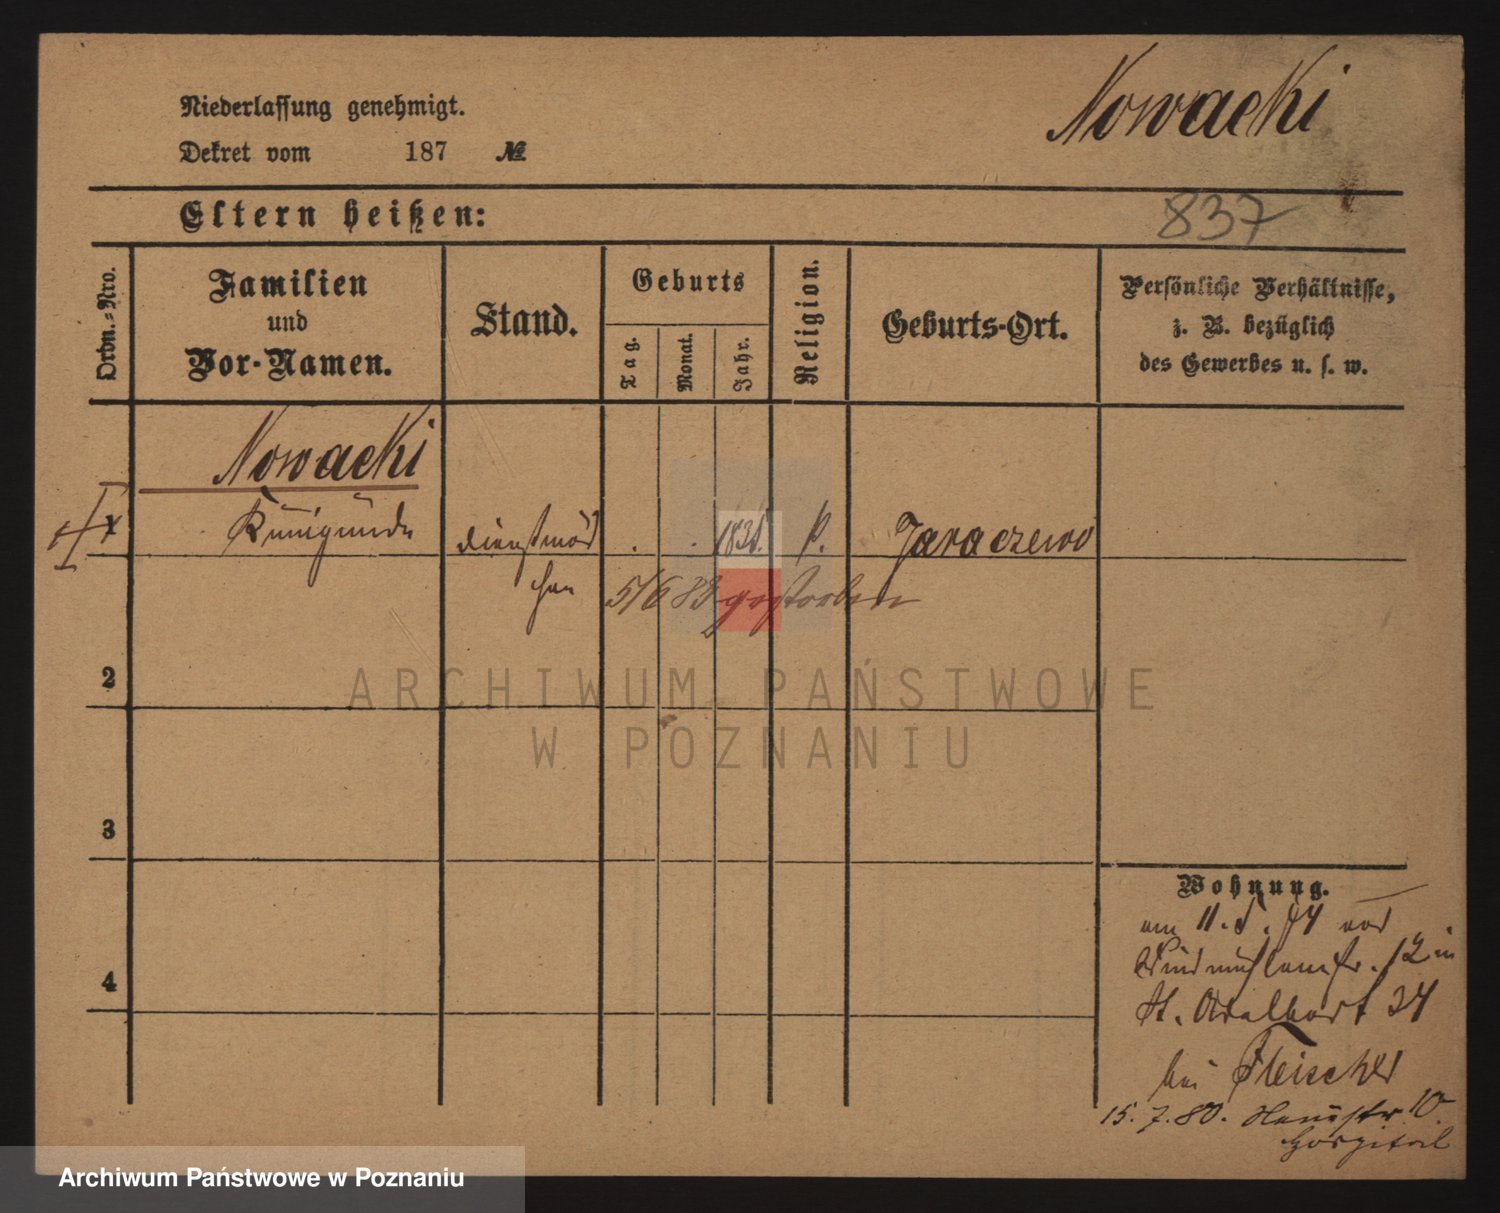 Nowacki
Niederlassung genehmigt.
Dekret vom 187 №
Eltern heißen:
837
Ordn.-Nro.
Familien
und
Vor-Namen.
Stand.
Geburts
Tag.
Monat.
Jahr.
Religion.
Geburts-Ort.
Persönliche Verhältnisse,
z. B. bezüglich
des Gewerbes u. s. w.
Nowacki
Kunigunde
dienstmäd
chen
k.
Jaraczewo
5/6 83 gestorben
2
3
4
Wohnung.
am 11. 74 von
Windmühlenstr. 12 in
St. Adalbert 34
bei Fleischer
15.7.80. 10
Hospital
ARCHIWUM PAŃSTWOWE
W POZNANIU
Archiwum Państwowe w Poznaniu